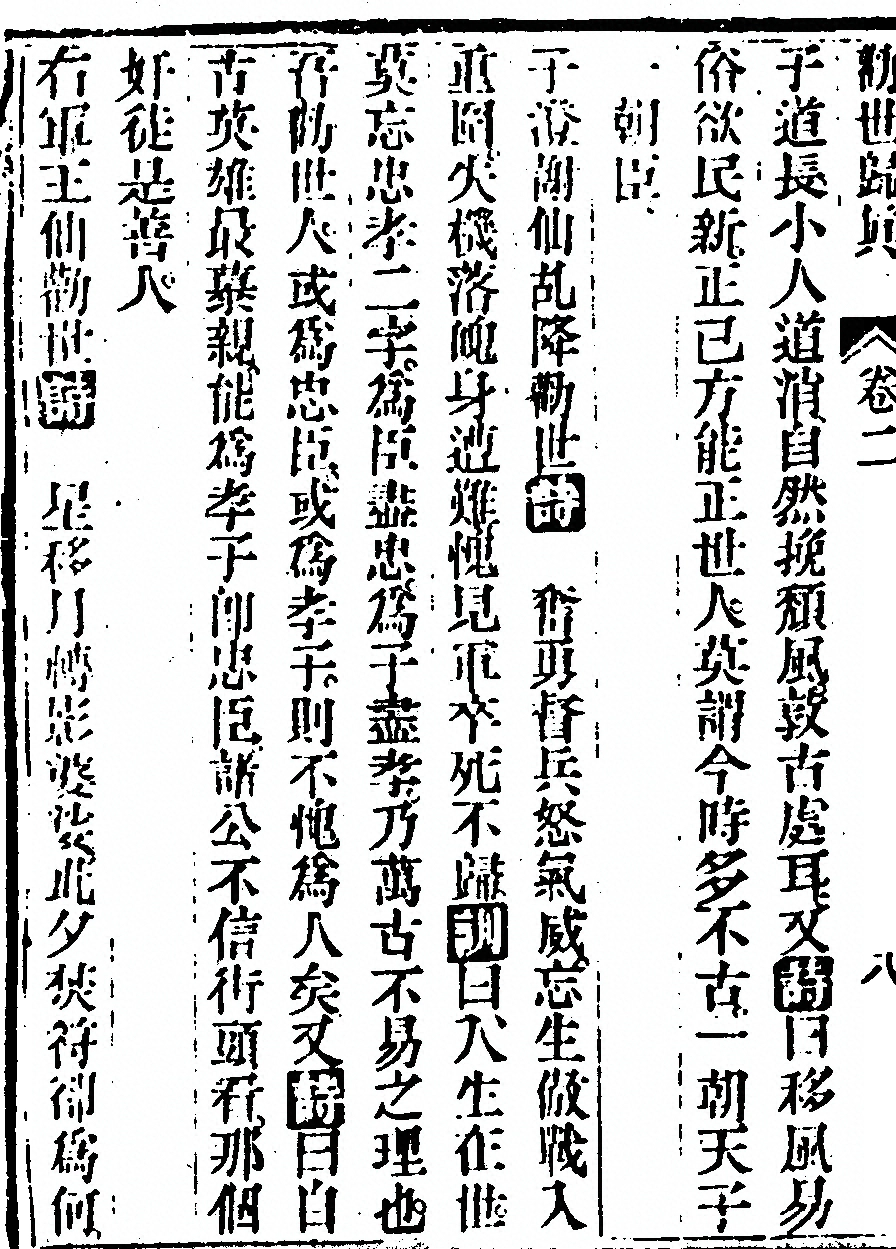 勸世歸真 卷二 八
子道長小人道消自然挽頹風敦古處耳又詩曰移風易
俗欲民新正己方能正世人莫謂今時多不古一朝天子
一朝臣
子澄謝仙乩降勸世詩 奮勇督兵怒氣威忘生做戰入
重圍失機落魄身遭難愧見軍卒死不歸訓曰人生在世
莫忘忠孝二字爲臣盡忠爲子盡孝乃萬古不易之理也
吾勸世人或爲忠臣或爲孝子則不愧爲人矣又詩曰自
古英雄最慕親能爲孝子卽忠臣諸公不信街頭看那個
奸徒是善人
右軍王仙勸世詩 星移月轉影婆娑此夕焚符卻爲何